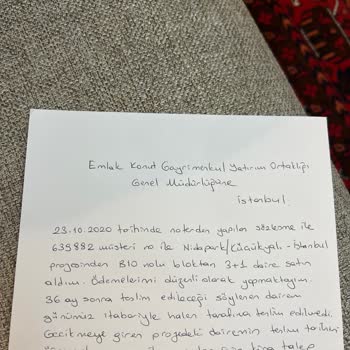 Emlak Konut Gayrimenkul Yatırım Ortaklığı
Genel Müdürlüğüne
İstanbul
23.10.2020 tarihinde noterden yapılan sözleşme ile
639882 müşteri no ile Nidapark/Küçükyalı - İstanbul
projesinden B10 nolu bloktan 3+1 daire satın
aldım. Ödemelerimi düzenli olarak yapmaktayım.
36 ay sonra teslim edileceği söylenen dairem
günümüz itabariyle halen tarafıma teslim edilmedi.
Gecikmeye giren projedeki dairemin teslim tarihini